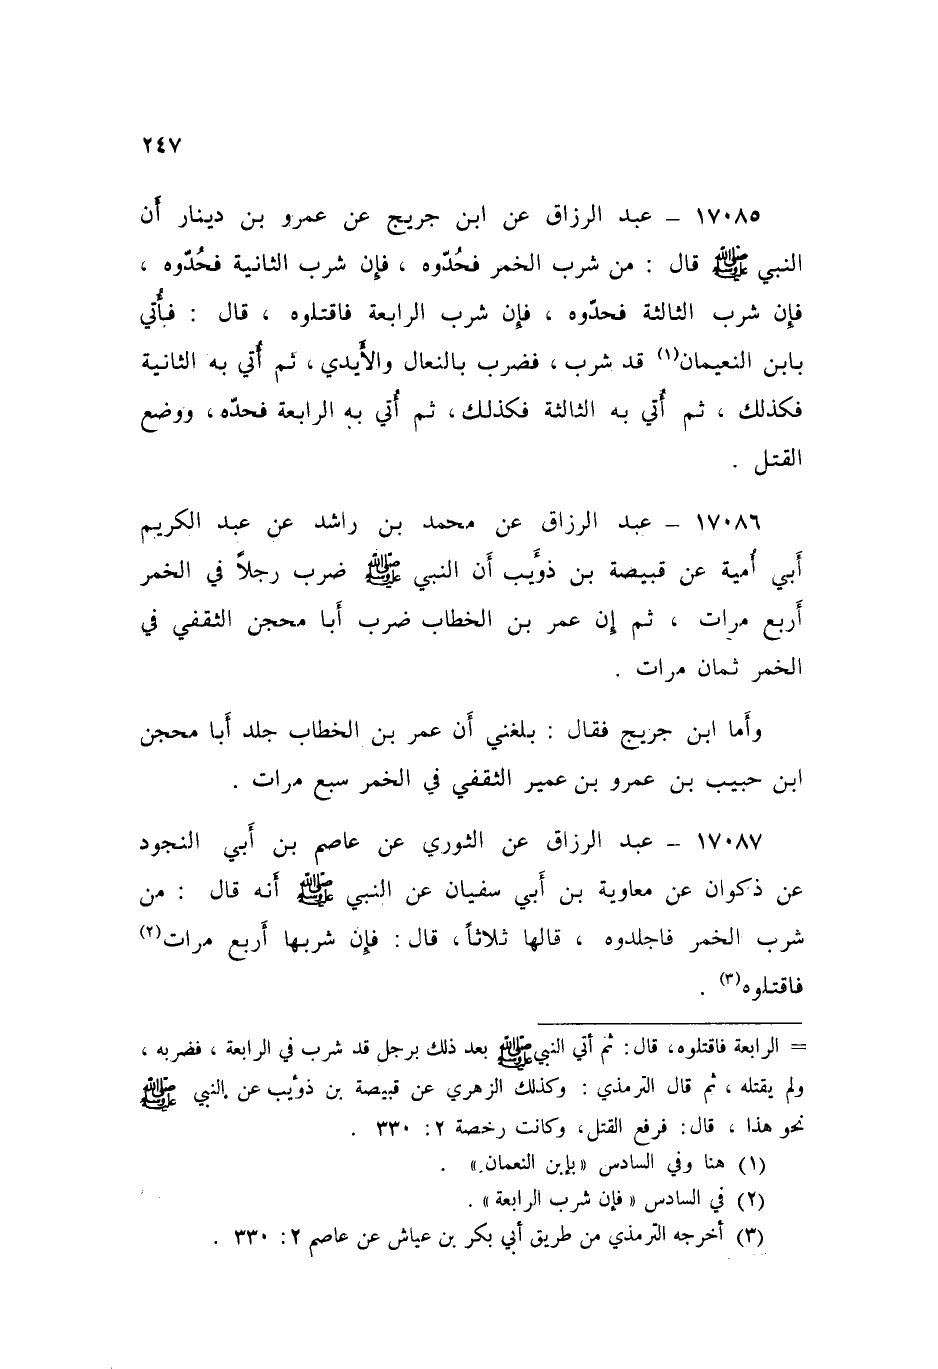 ٢٤٧
١٧٠٨٥ ـ عبد الرزاق عن ابن جريج عن عمرو بن دينار أَن
النبي ﷺ قال : من شرب الخمر فحُدّوه ، فإِن شرب الثانية فحُدّوه ،
فإِن شرب الثالثة فحدّوه ، فإِن شرب الرابعة فاقتلوه ، قال : فأُتي
بابن النعيمان(١) قد شرب ، فضرب بالنعال والأَيدي ، ثم أُتي به الثانية
فكذلك ، ثم أُتي به الثالثة فكذلك ، ثم أُتي به الرابعة فحدّه ، ووضع
القتل .
١٧٠٨٦ ـ عبد الرزاق عن محمد بن راشد عن عبد الكريم
أَبي أُمية عن قبيصة بن ذؤَيب أَن النبي ﷺ ضرب رجلاً في الخمر
أَربع مرات ، ثم إِن عمر بن الخطاب ضرب أَبا محجن الثقفي في
الخمر ثمان مرات .
وأَما ابن جريج فقال : بلغني أَن عمر بن الخطاب جلد أَبا محجن
ابن حبيب بن عمرو بن عمير الثقفي في الخمر سبع مرات .
١٧٠٨٧ ـ عبد الرزاق عن الثوري عن عاصم بن أَبي النجود
عن ذكوان عن معاوية بن أَبي سفيان عن النبي ﷺ أَنه قال : من
شرب الخمر فاجلدوه ، قالها ثلاثاً ، قال : فإِن شربها أَربع مرات(٢)
فاقتلوه(٣) .
= الرابعة فاقتلوه، قال : ثم أتي النبي ﷺ بعد ذلك برجل قد شرب في الرابعة ، فضربه ،
ولم يقتله ، ثم قال الترمذي : وكذلك الزهري عن قبيصة بن ذوأيب عن النبي ﷺ
نحو هذا ، قال : فرفع القتل، وكانت رخصة ٢ : ٣٣٠ .
(١) هنا وفي السادس «بإبن النعمان» .
(٢) في السادس « فإن شرب الرابعة » .
(٣) أخرجه الترمذي من طريق أبي بكر بن عياش عن عاصم ٢ : ٣٣٠ .